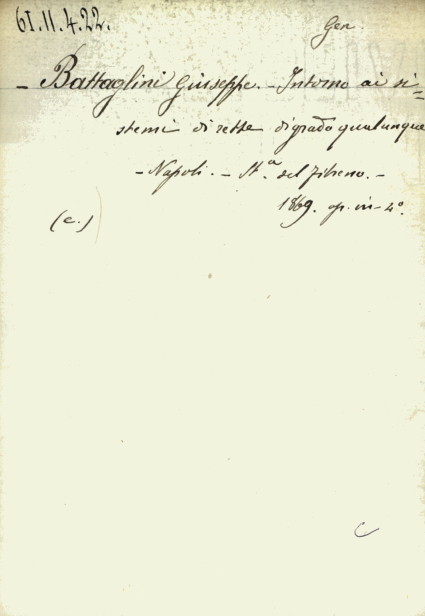 61.11.4.22.
Gen.
- Battaglini Giuseppe. - Intorno ai si=
stemi di rette di grado qualunque
- Napoli. - St.a del Fibreno. -
1869. op. in-4°.
(c.)
C